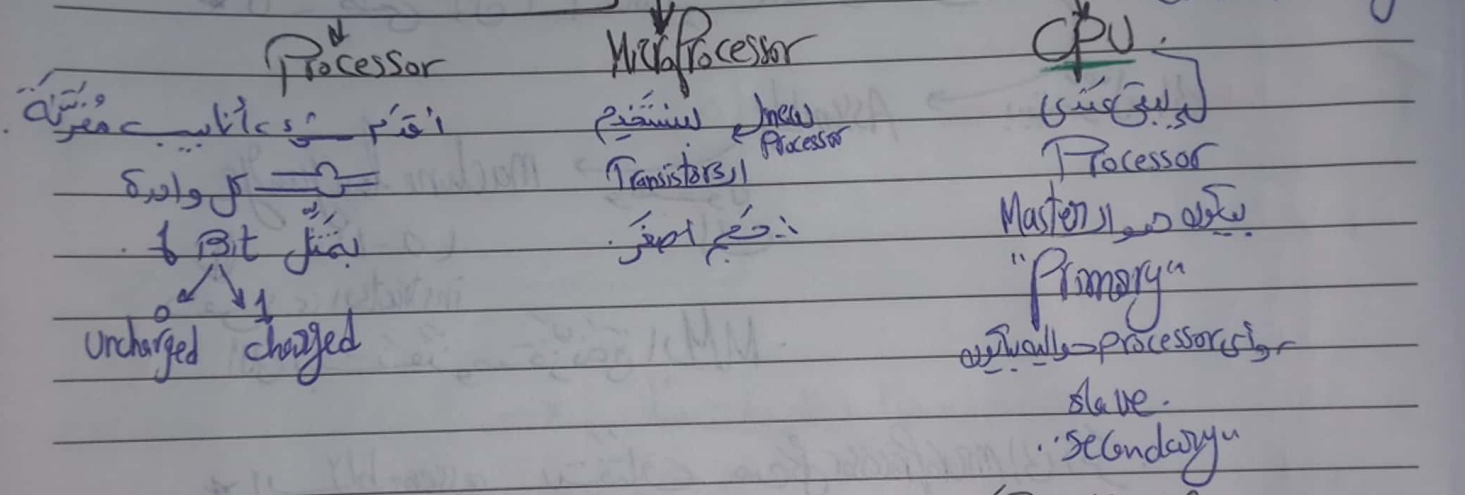 Processor
أقدم شوي، أنابيب مفرغة
كل واحدة
بتمثل 1 Bit
0 1
uncharged charged
MicroProcessor
new Processor بستخدم
الـ Transistors
حجم أصغر
CPU
أي
Processor
بكون هو الـ Master
"Primary"
processor حواليه بكون
slave.
"secondary"